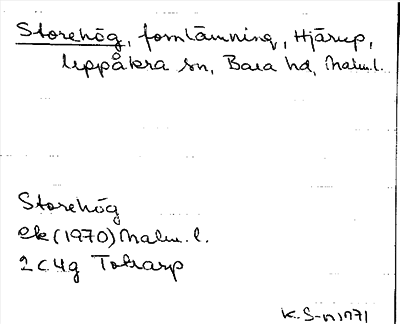 Storehög, fornlämning, Hjärup,
Uppåkra sn, Bara hd, Malm.l.
Storehög
ek (1970) Malm. l.
2C4g Tokarp
K. S-n 1971